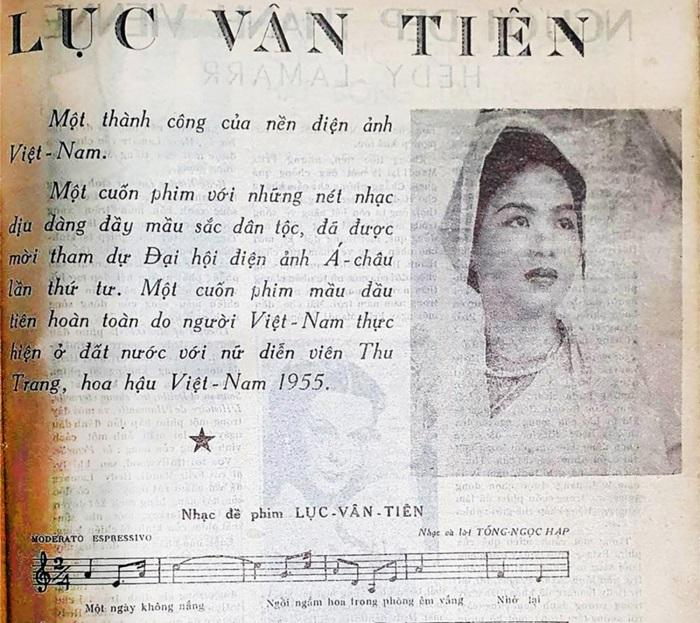 LỤC VÂN TIÊN
Một thành công của nền điện ảnh
Việt-Nam.
Một cuốn phim với những nét nhạc
dịu dàng đầy mầu sắc dân tộc, đã được
mời tham dự Đại hội điện ảnh Á-châu
lần thứ tư. Một cuốn phim mầu đầu
tiên hoàn toàn do người Việt-Nam thực
hiện ở đất nước với nữ diễn viên Thu
Trang, hoa hậu Việt-Nam 1955.
Nhạc đề phim LỤC-VÂN-TIÊN
MODERATO ESPRESSIVO
Nhạc và lời TỐNG-NGỌC-HẠP
2/4
Một ngày không nắng Ngồi ngắm hoa trong phòng êm vắng Nhớ lại